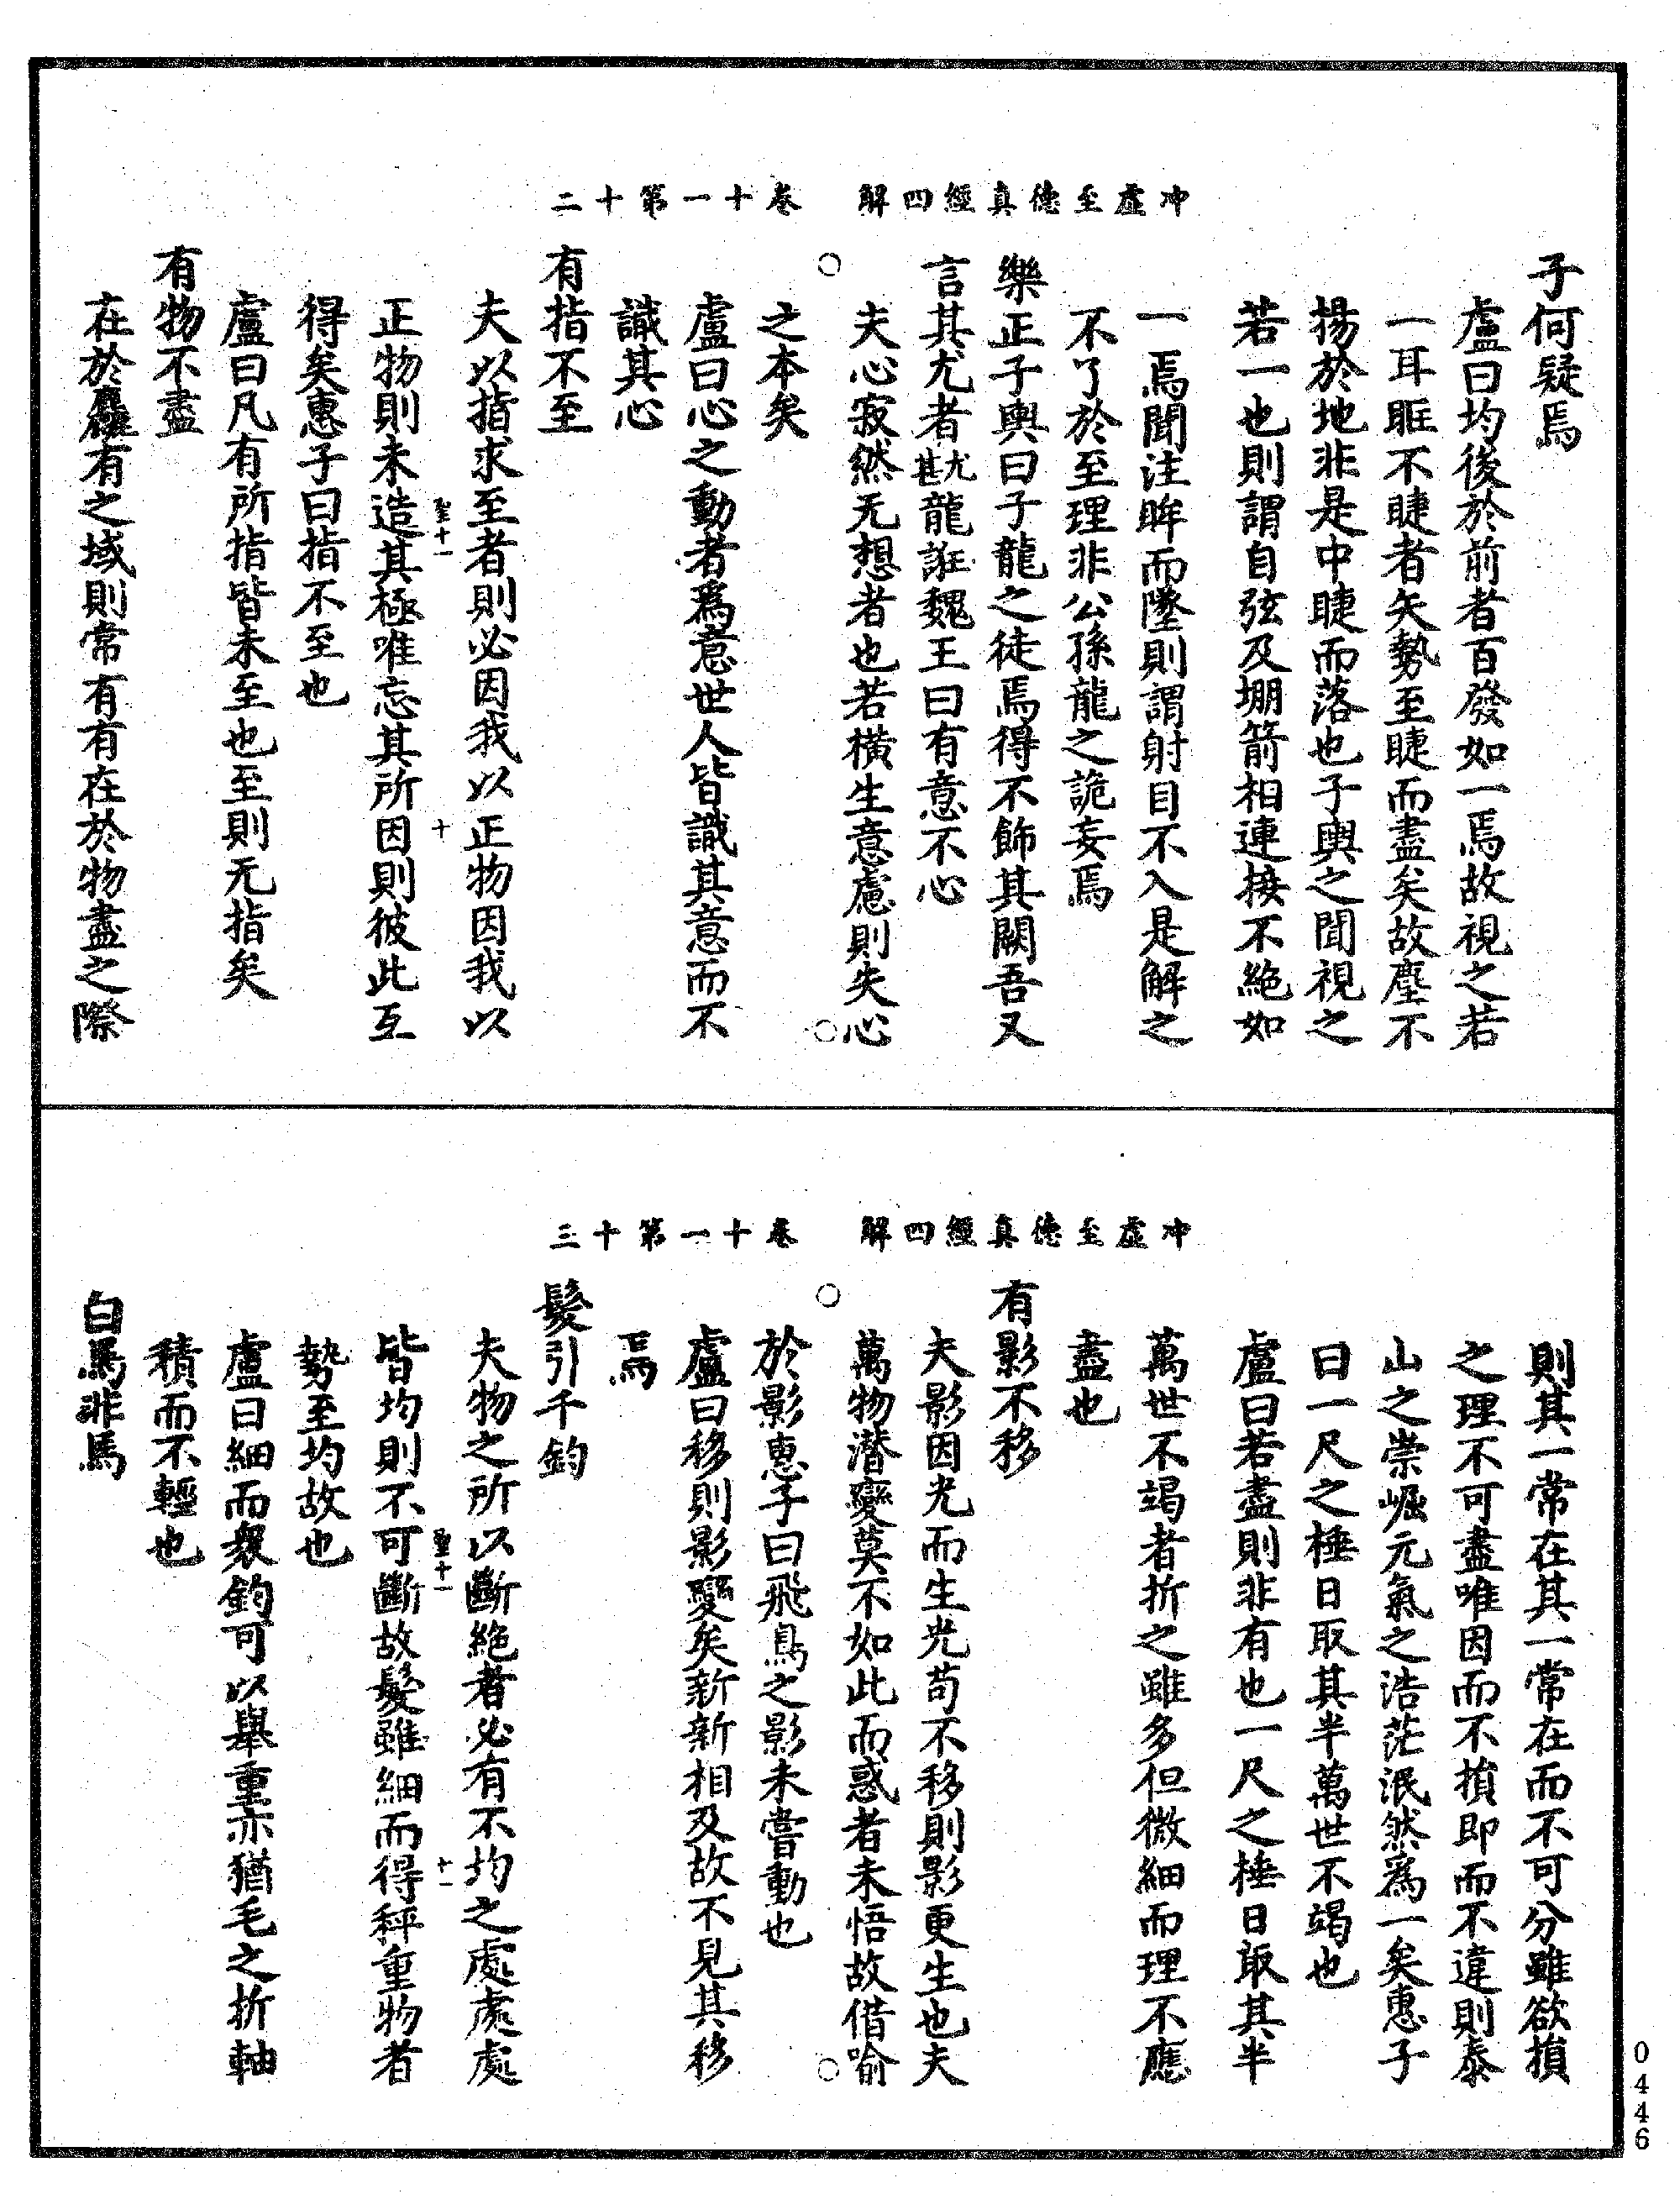 冲虛至德真經四解　卷十一第十二
子何疑焉
盧曰均後於前者百發如一焉故視之若
一耳眶不睫者矢勢至睫而盡矣故塵不
揚於地非是中睫而落也子輿之聞視之
若一也則謂自弦及堋箭相連接不絕如
一焉聞注眸而墜則謂射目不入是解之
不了於至理非公孫龍之詭妄焉
樂正子輿曰子龍之徒焉得不飾其闕吾又
言其尤者尤甚龍誑魏王曰有意不心
夫心寂然无想者也若橫生意慮則失心
之本矣
盧曰心之動者為意世人皆識其意而不
識其心
有指不至
夫以指求至者則必因我以正物因我以
正物則未造其極唯忘其所因則彼此互
得矣惠子曰指不至也
盧曰凡有所指皆未至也至則无指矣
有物不盡
在於麤有之域則常有有在於物盡之際
聖十一
十
冲虛至德真經四解　卷十一第十三
則其一常在其一常在而不可分雖欲損
之理不可盡唯因而不損即而不違則泰
山之崇崛元氣之浩茫泯然為一矣惠子
曰一尺之棰日取其半萬世不竭也
盧曰若盡則非有也一尺之棰日取其半
萬世不竭者折之雖多但微細而理不應
盡也
有影不移
夫影因光而生光苟不移則影更生也夫
萬物潛變莫不如此而惑者未悟故借喻
於影惠子曰飛鳥之影未嘗動也
盧曰移則影變矣新新相及故不見其移
焉
髮引千鈞
夫物之所以斷絕者必有不均之處處處
皆均則不可斷故髮雖細而得秤重物者
勢至均故也
盧曰細而衆鈞可以舉重亦猶毛之折軸
積而不輕也
白馬非馬
聖十一
十一
0446